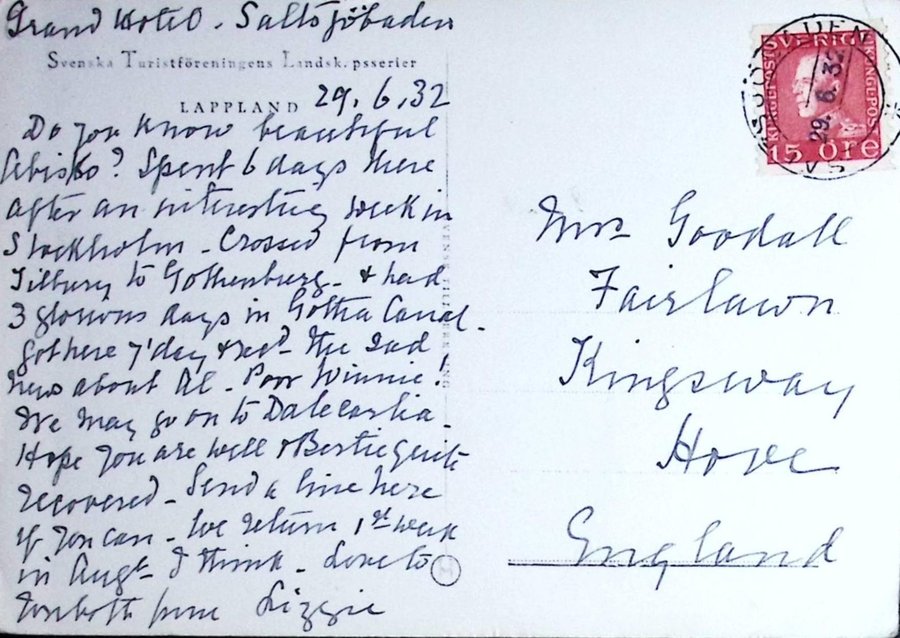 Grand Hotel - Saltsjöbaden
Svenska Turistföreningens Landskapsserier
LAPPLAND 29.6.32
Do you know beautiful
Abisko? Spent 6 days there
after an interesting week in
Stockholm - Crossed from
Tilbury to Gothenburg - & had
3 glorious days in Gotha Canal -
Got here y'day & recd the sad
news about Al - Poor Winnie!
We may go on to Dalecarlia -
Hope you are well & Bertie quite
recovered - Send a line here
if you can - We return 1st week
in Augt I think - Love to
you both from Lizzie
SVERIGE
15 ÖRE
29. 6. 32
Mrs Goodall
Fairlawn
Kingsway
Hove
England